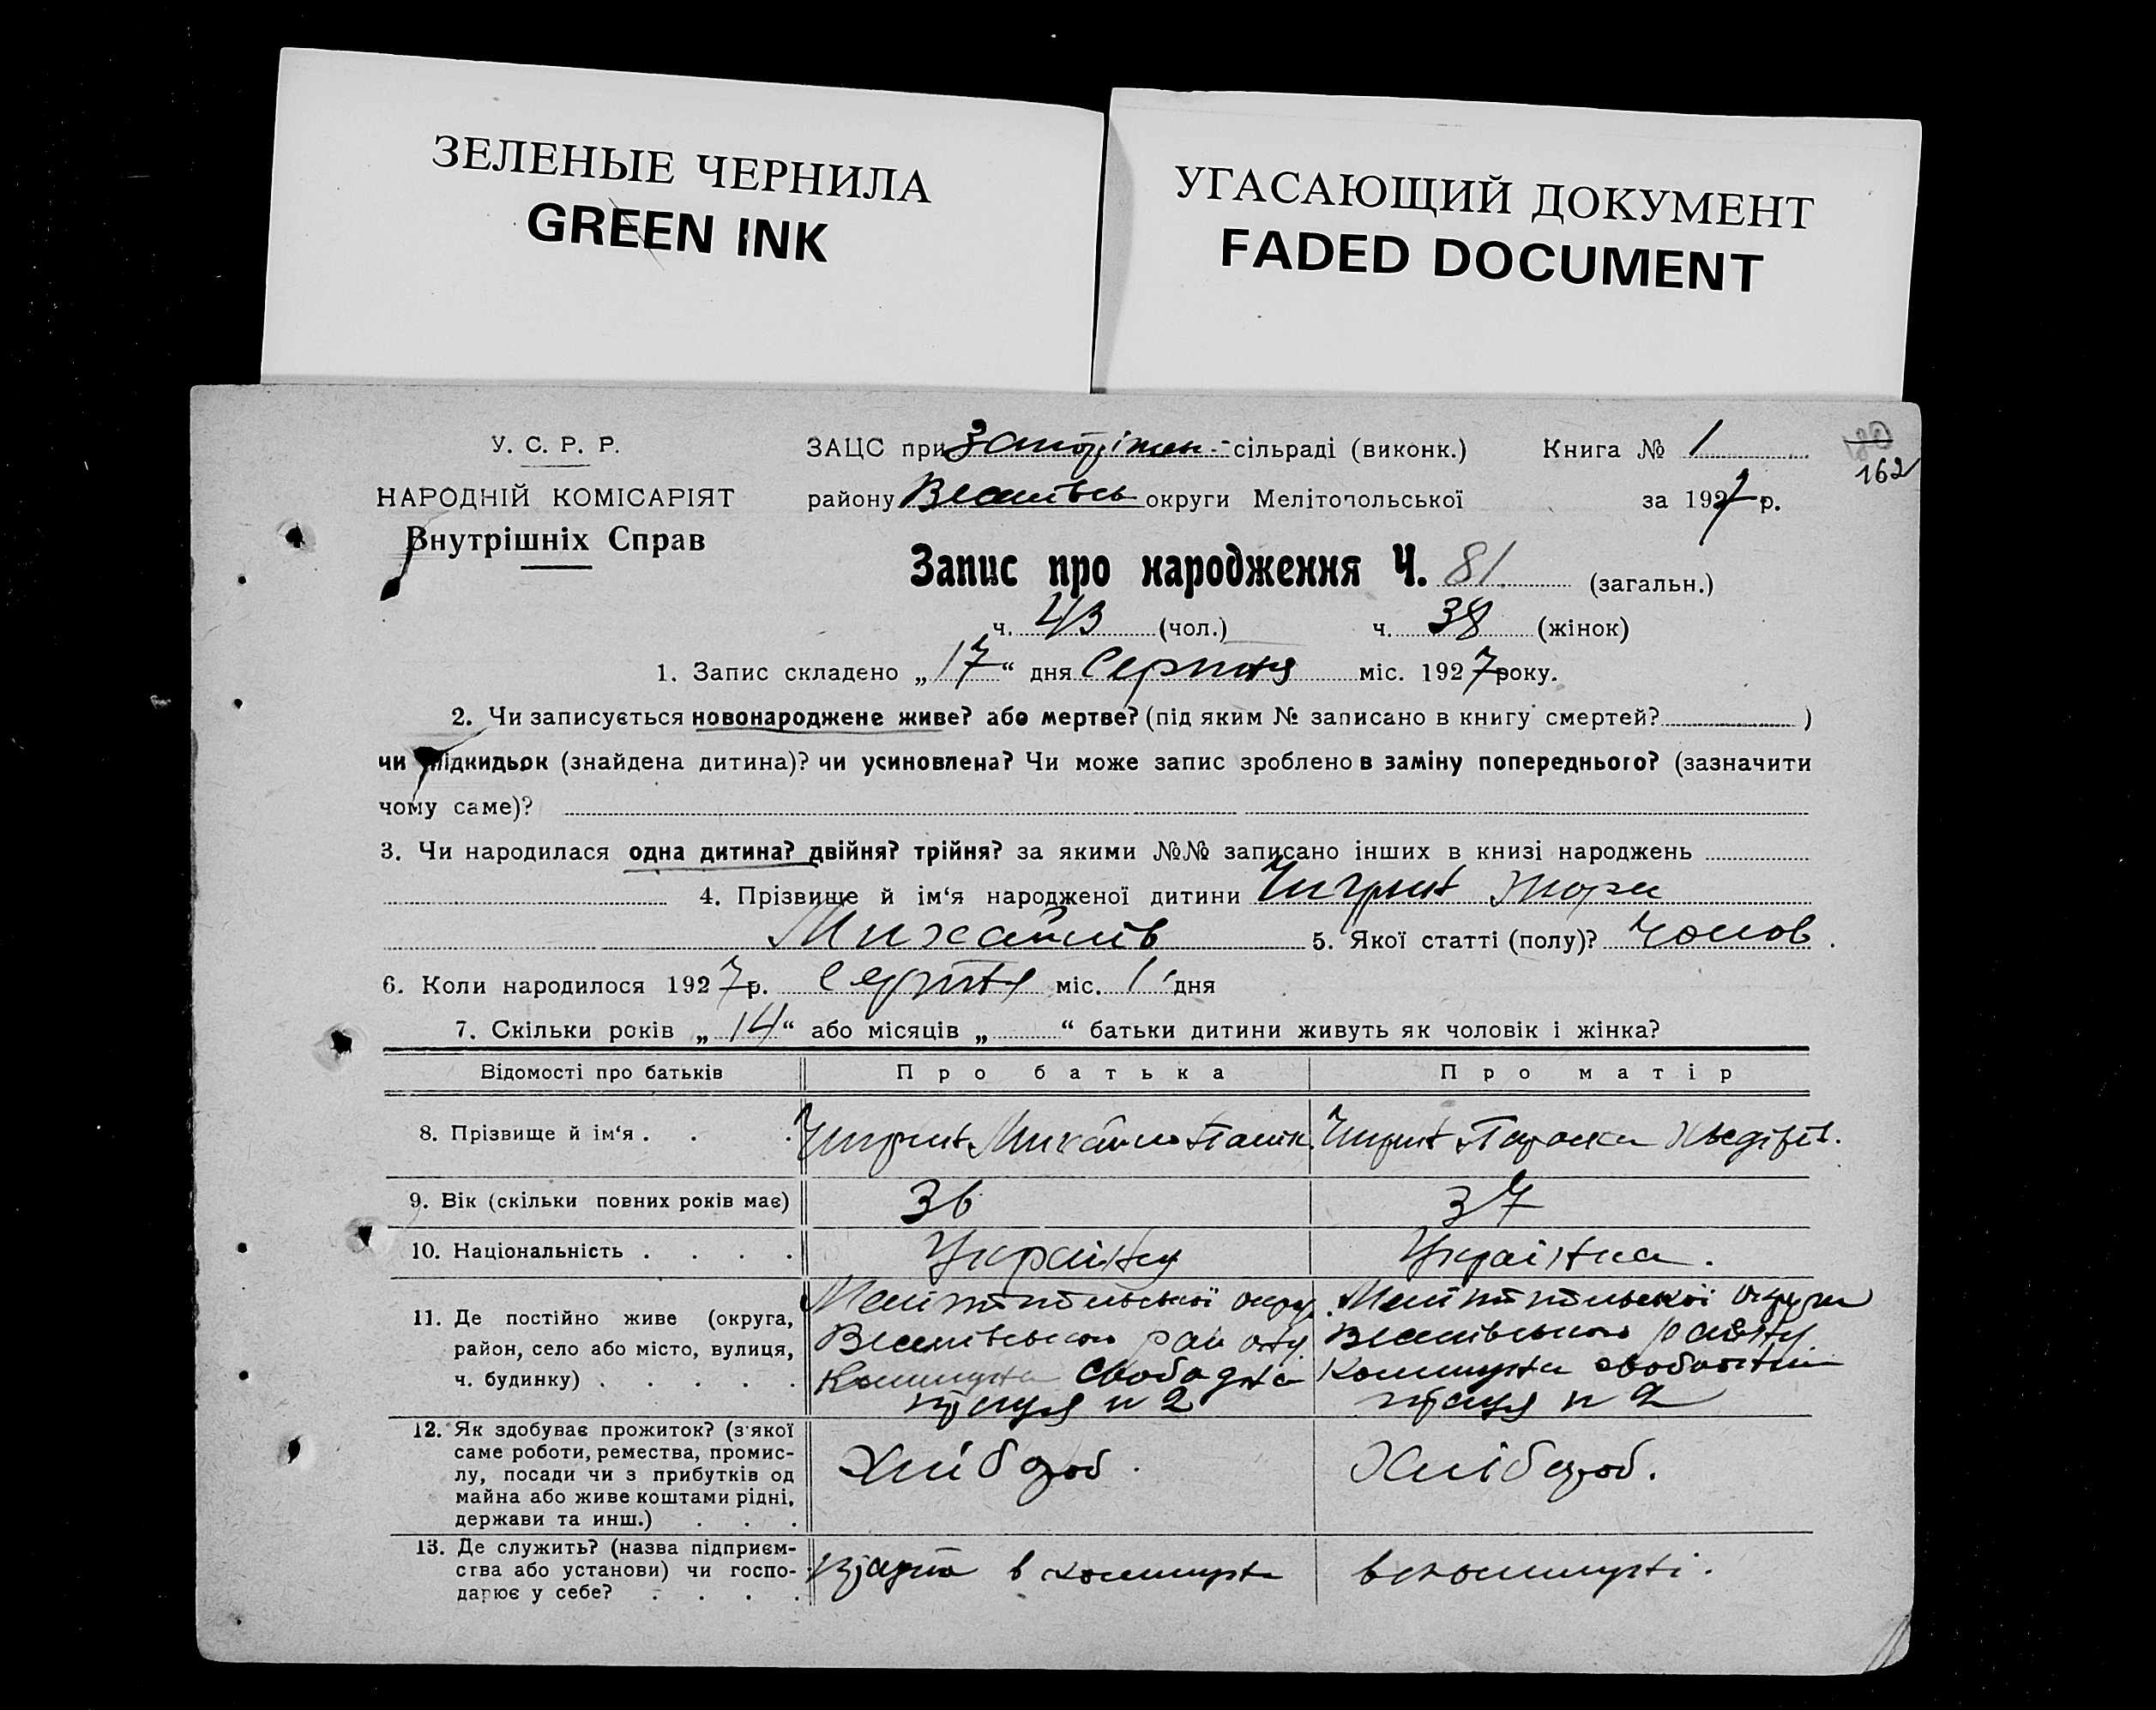 ЗЕЛЕНЫЕ ЧЕРНИЛА
GREEN INK
УГАСАЮЩИЙ ДОКУМЕНТ
FADED DOCUMENT
У. С. Р. Р.
НАРОДНІЙ КОМІСАРІЯТ
Внутрішніх Справ
ЗАЦС при сільраді (виконк.) Книга № 1
162
району округи Мелітопольської за 1927 р.
Запис про народження Ч. 81 (загальн.)
ч. 43 (чол.) ч. 38 (жінок)
1. Запис складено „17“ дня Серпня міс. 1927 року.
2. Чи записується новонароджене живе? або мертве? (під яким № записано в книгу смертей? )
чи підкидьок (знайдена дитина)? чи усиновлена? Чи може запис зроблено в заміну попереднього? (зазначити
чому саме)?
3. Чи народилася одна дитина? двійня? трійня? за якими №№ записано інших в книзі народжень
4. Прізвище й ім‘я народженої дитини
Михайлів 5. Якої статті (полу)? Чолов.
6. Коли народилося 1927 р. Серпня міс. 1 дня
7. Скільки років „14“ або місяців „ “ батьки дитини живуть як чоловік і жінка?
Відомості про батьків Про батька Про матір
8. Прізвище й ім‘я . . . Михайло Параска
9. Вік (скільки повних років має) 36 37
10. Національність . . . . Українец Українка.
11. Де постійно живе (округа, район, село або місто, вулиця, ч. будинку) . . . . .
Мелітопольської округ. Мелітопольської округи
району району
Комуна Свободна Комуна
праця н 2 праця н 2
12. Як здобуває прожиток? (з'якої
саме роботи, ремества, промис-
лу, посади чи з прибутків од
майна або живе коштами рідні,
держави та инш.) . . .
Хлібороб. Хлібороб.
13. Де служить? (назва підприєм-
ства або установи) чи госпо-
дарює у себе? . . . .
в комуні в комуні.